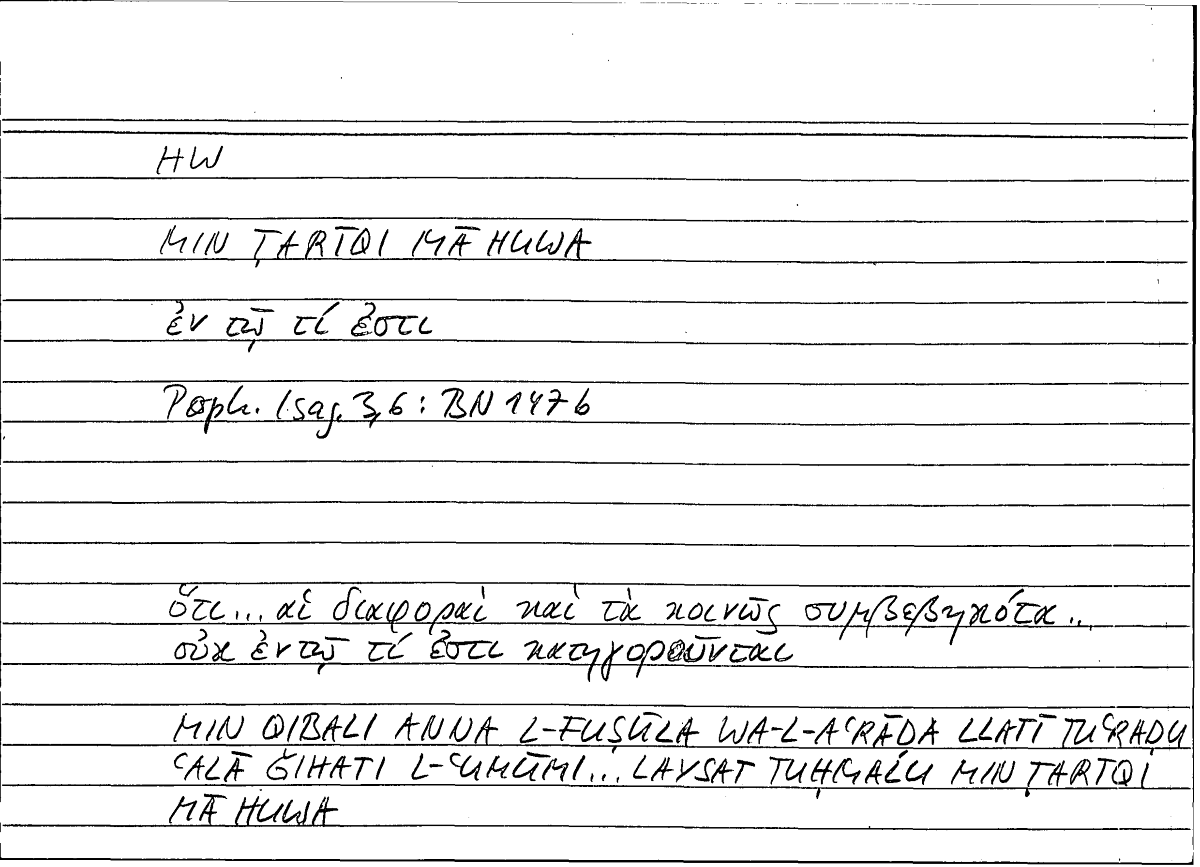 HW
MIN ṬARĪQI MĀ HUWA
ἐν τῷ τί ἐστι
Porph. Isag. 3,6 : BN 147b
ὅτι... αἱ διαφοραὶ καὶ τὰ κοινῶς συμβεβηκότα..
οὐκ ἐν τῷ τί ἐστι κατηγοροῦνται
MIN QIBALI ANNA L-FUṢŪLA WA-L-AʿRĀḌA LLATĪ TUʿRAḌU
ʿALĀ ǦIHATI L-ʿUMŪMI... LAYSAT TUḤMALU MIN ṬARĪQI
MĀ HUWA